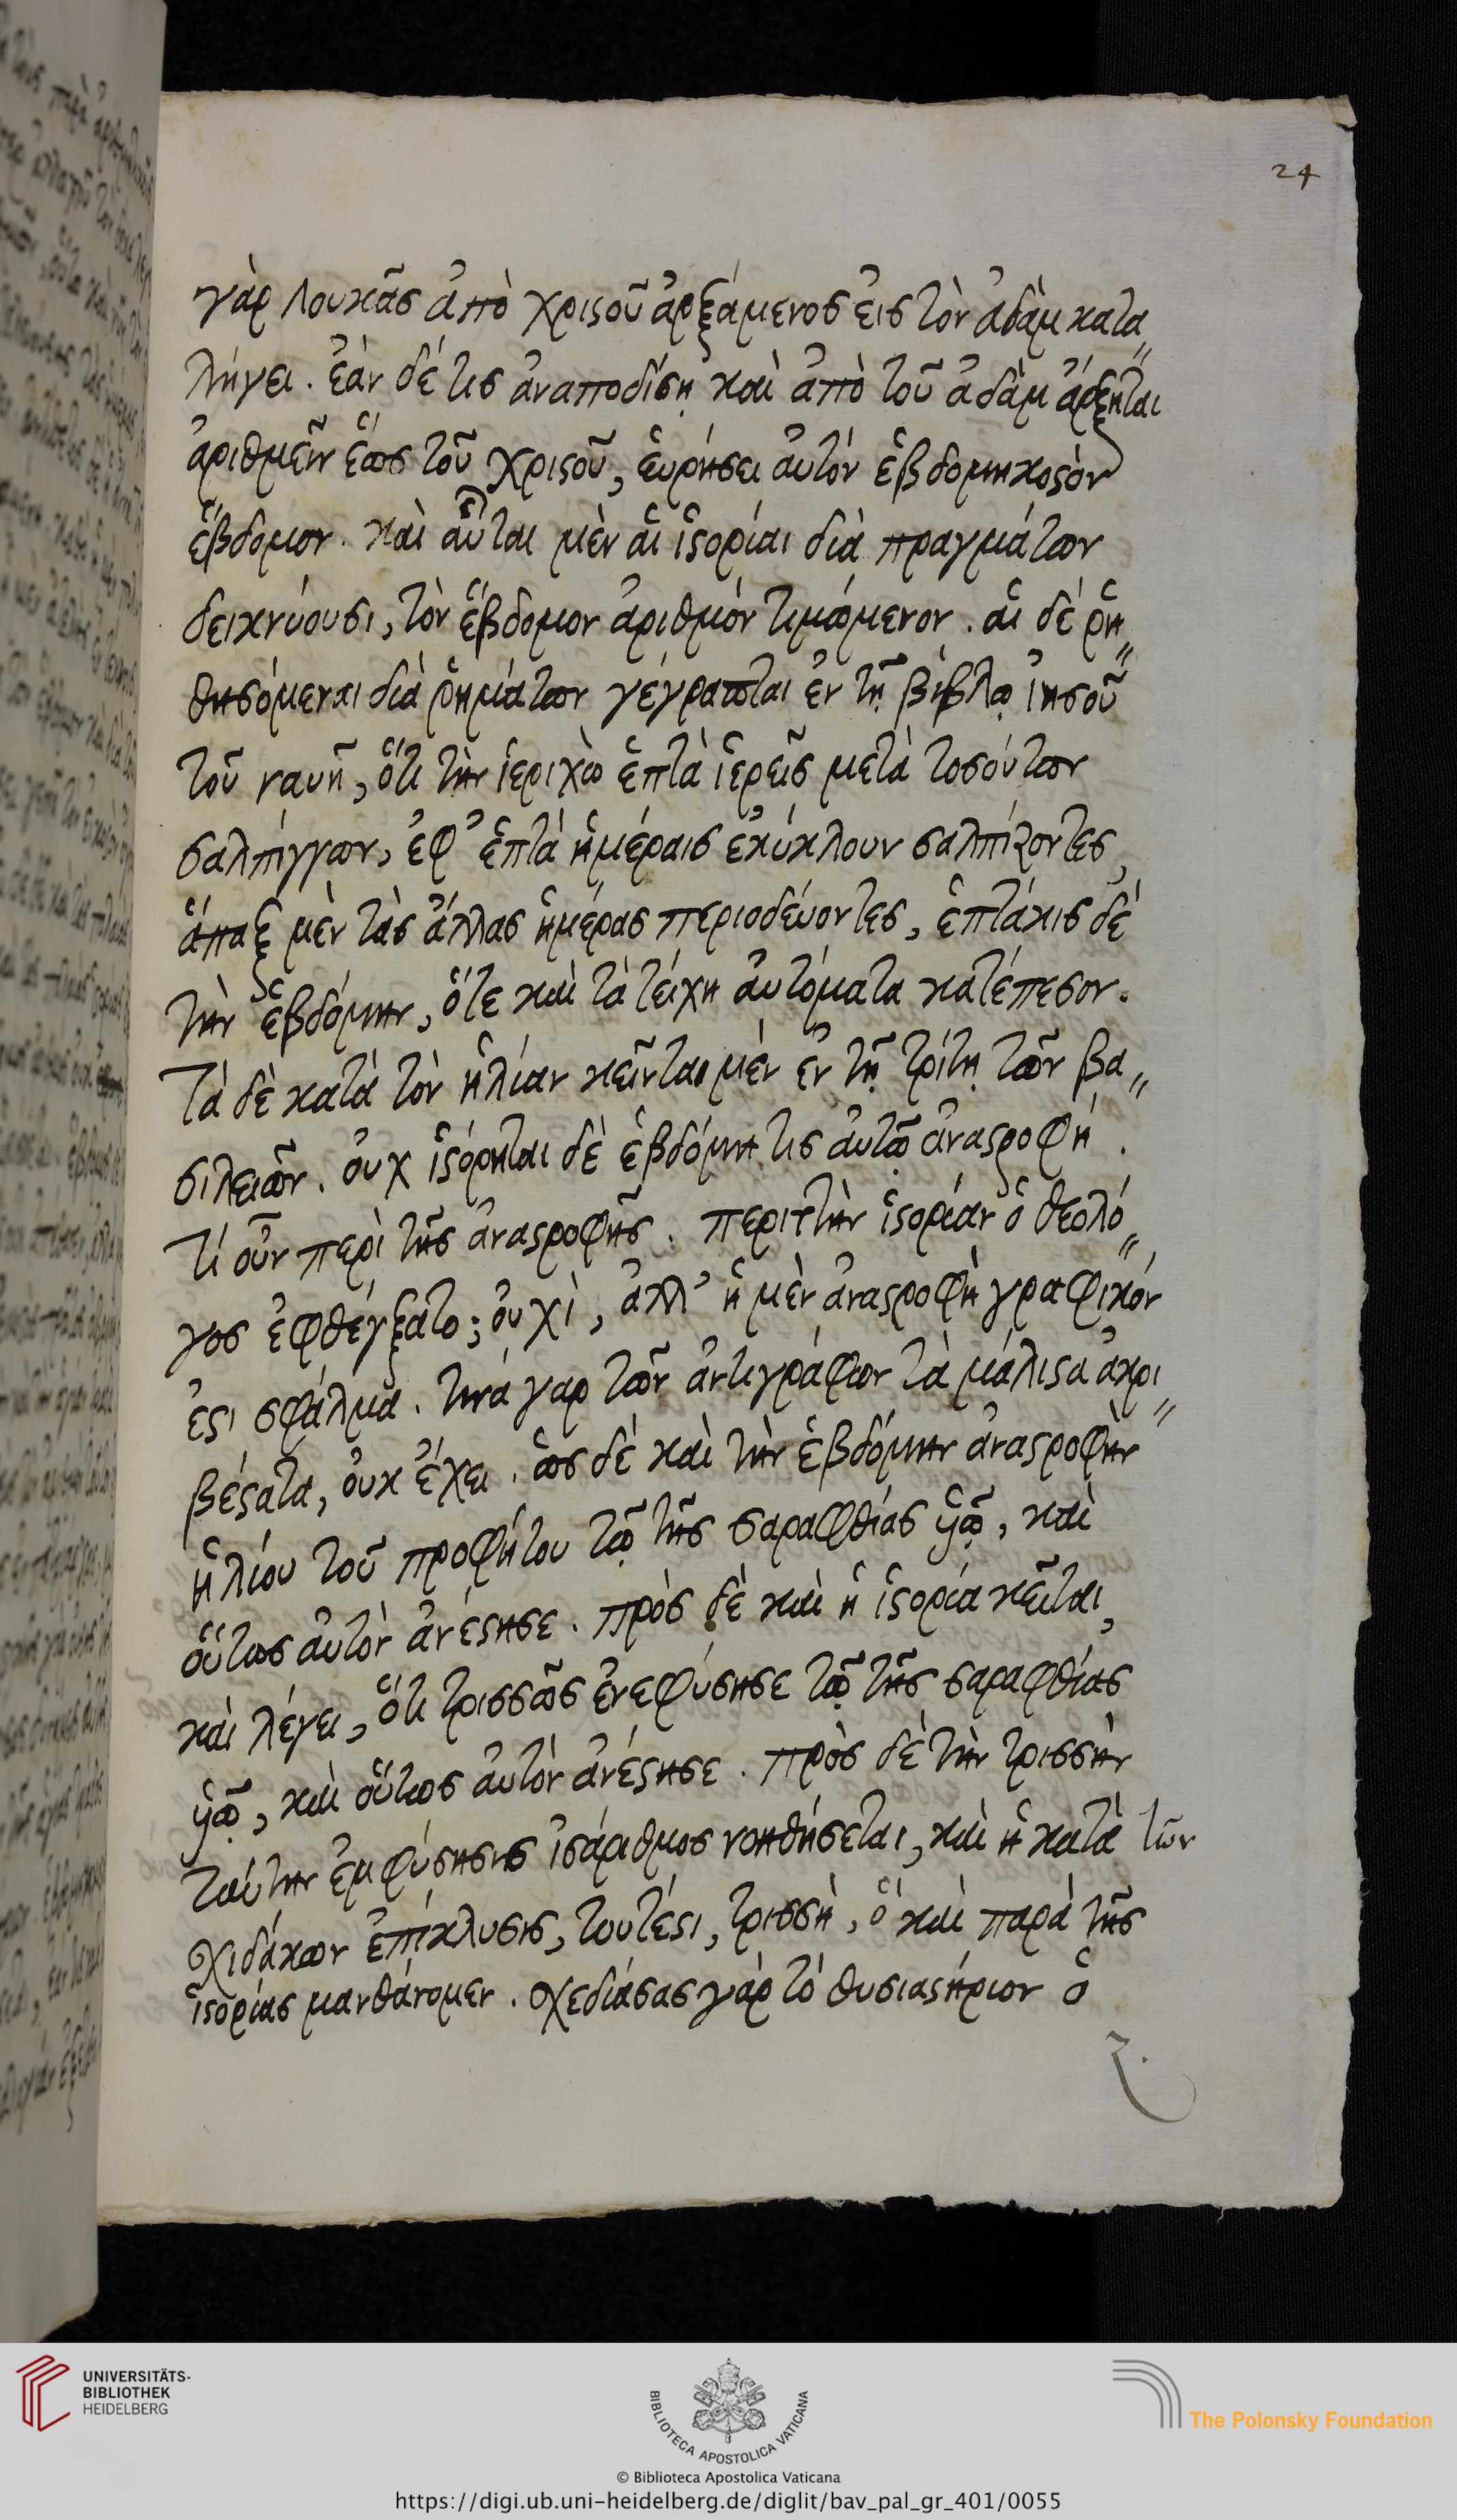 24
γὰρ λουκᾶς ἀπὸ χριϛοῦ ἀρξάμενος εἰς τὸν ἀδὰμ κατα〃
λήγει. ἐὰν δέ τις ἀναποδίσῃ καὶ ἀπὸ τοῦ ἀδὰμ ἄρξηται
ἀριθμεῖν ἕως τοῦ χριϛοῦ, εὑρήσει αὐτόν ἑβδομηκοϛὸν
ἕβδομον. καὶ αὗται μὲν αἱ ἱϛορίαι διὰ πραγμάτων
δεικνύουσι, τὸν ἕβδομον ἀριθμὸν τιμώμενον. αἱ δέ ῥη〃
θησόμεναι διὰ ῥημάτων γέγραπται ἐν τῇ βίβλῳ ἰησοῦ
τοῦ ναυῆ, ὅτι τὴν ἱεριχὼ ἑπτὰ ἱερεῖς μετὰ τοσούτων
σαλπίγγων, ἐφ' ἑπτὰ ἡμέραις ἐκύκλουν σαλπίζοντες,
ἅπαξ μὲν τὰς ἄλλας ἡμέρας περιοδεύοντες, ἑπτάκις δὲ
τὴν ἑβδόμην, ὅτε καὶ τὰ τείχη αὐτόματα κατέπεσον.
Τὰ δὲ κατὰ τὸν ἡλίαν κεῖνται μὲν ἐν τῇ τρίτῃ τῶν βα〃
σιλειῶν. οὐχ ἱϛόρηται δὲ ἑβδόμη τις αὐτῷ ἀναϛροφή.
τί οὖν περὶ τῆς ἀναϛροφῆς. περιττὴν ἱϛορίαν ὁ θεολό〃
γος ἐφθέγξατο; οὐχὶ, ἀλλ' ἡ μὲν ἀναϛροφὴ γραφικόν
ἐϛι σφάλμα. τινά γαρ τῶν ἀντιγράφων τὰ μάλιϛα ἀκρι〃
βέϛατα, οὐκ ἔχει. ὡς δὲ καὶ τὴν ἑβδόμην ἀναϛροφὴν
ἡλίου τοῦ προφήτου τῷ τῆς σαραφθίας ὑῷ, καὶ
οὕτως αὐτὸν ἀνέϛησε. πρὸς δὲ καὶ ἡ ἱϛορία κεῖται,
καὶ λέγει, ὅτι τρισσῶς ἐνεφύσησε τῷ τῆς σαραφθίας
ὑῷ, καὶ οὕτως αὐτὸν ἀνέϛησε. πρὸς δὲ τὴν τρισσὴν
ταύτην ἐμφύσησις ἰσάριθμος νοηθήσεται, καὶ ἡ κατὰ τῶν
σχιδάκων ἐπίκλυσις, τουτέϛι, τρισσὴ, ὅ καὶ παρὰ τῆς
ἱϛορίας μανθάνομεν. σχεδιάσας γὰρ τὸ θυσιαϛήριον ὁ
ζ.
UNIVERSITÄTS-
BIBLIOTHEK
HEIDELBERG
BIBLIOTECA APOSTOLICA VATICANA
The Polonsky Foundation
© Biblioteca Apostolica Vaticana
https://digi.ub.uni-heidelberg.de/diglit/bav_pal_gr_401/0055